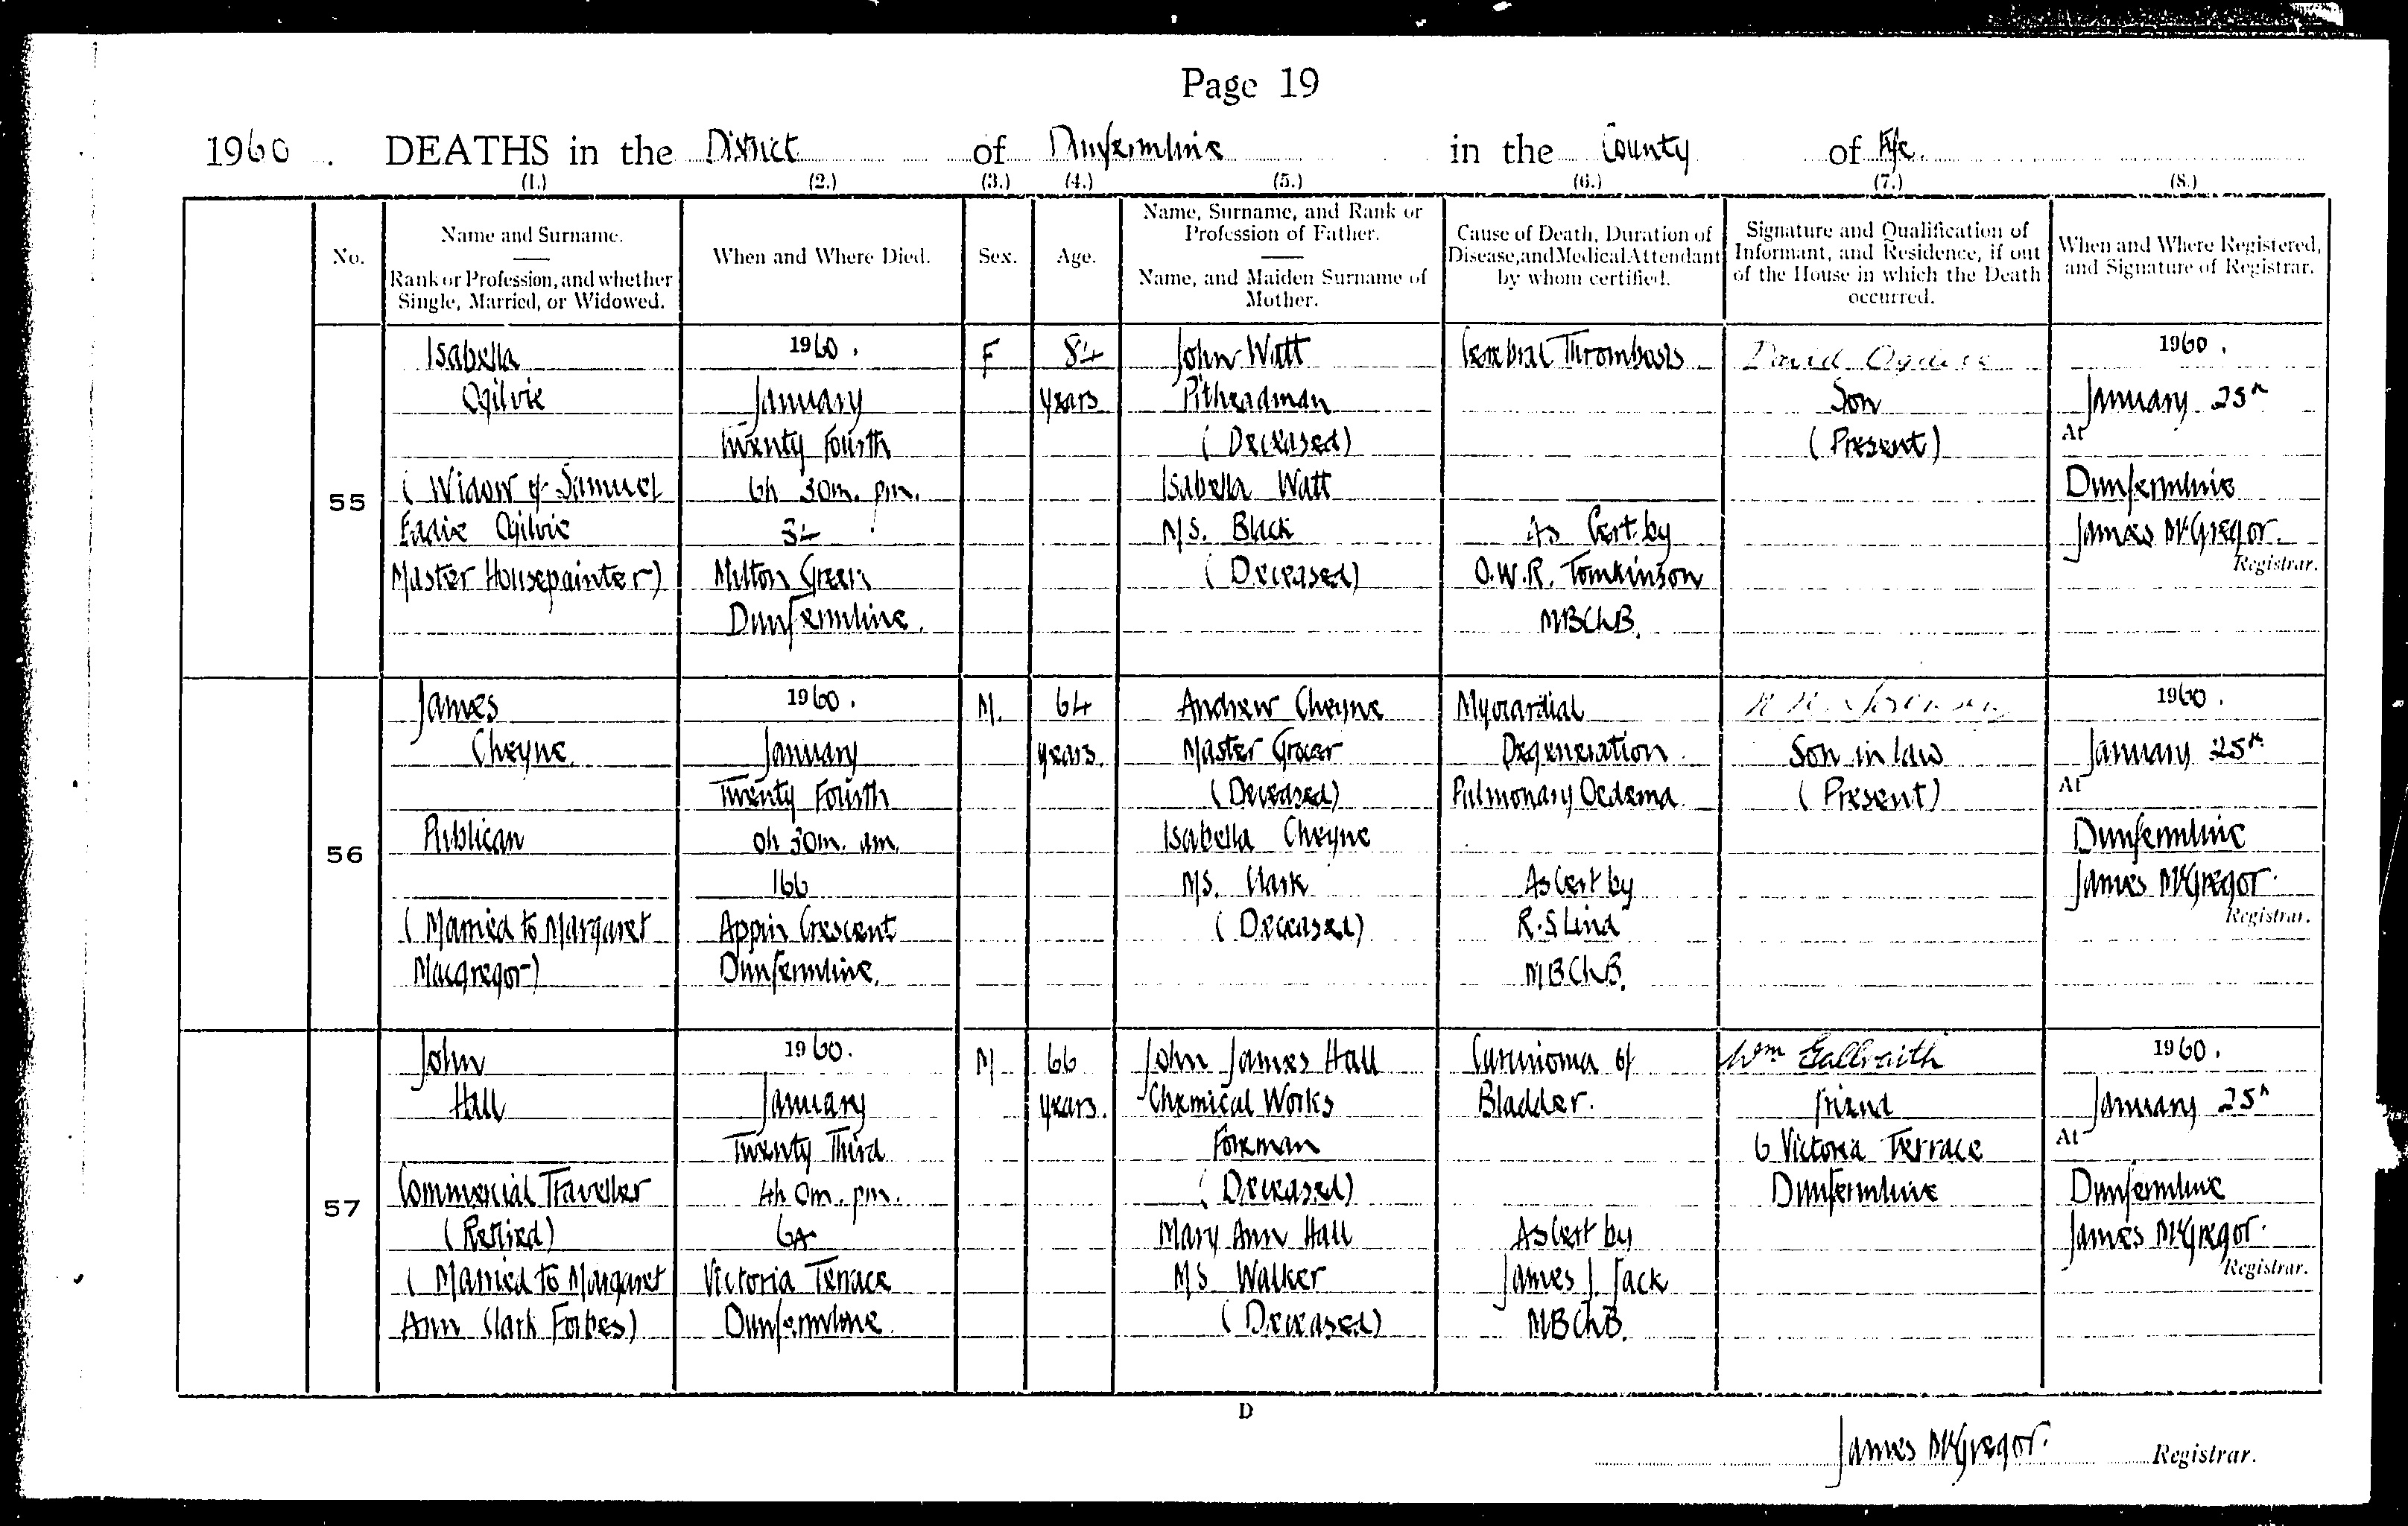 Page 19
1960. DEATHS in the District of Dunfermline in the County of Fife.
(1.) (2.) (3.) (4.) (5.) (6.) (7.) (8.)
No.
Name and Surname.
Rank or Profession, and whether
Single, Married, or Widowed.
When and Where Died.
Sex.
Age.
Name, Surname, and Rank or
Profession of Father.
Name, and Maiden Surname of
Mother.
Cause of Death, Duration of
Disease, and Medical Attendant
by whom certified.
Signature and Qualification of
Informant, and Residence, if out
of the House in which the Death
occurred.
When and Where Registered,
and Signature of Registrar.
55
Isabella
Ogilvie
(Widow of Samuel
Eadie Ogilvie
Master Housepainter)
1960.
January
Twenty Fourth
6h 30m. pm.
34
Milton Green
Dunfermline.
F
84
years
John Watt
Pitheadman
(Deceased)
Isabella Watt
M/S. Black
(Deceased)
Cerebral Thrombosis
As Cert. by
O.W.R. Tomkinson
MBChB.
David Ogilvie
Son
(Present)
1960.
January 25th
At
Dunfermline
James McGregor.
Registrar.
56
James
Cheyne
Publican
(Married to Margaret
Macgregor)
1960.
January
Twenty Fourth
0h 30m. am.
166
Appin Crescent
Dunfermline.
M.
64
years.
Andrew Cheyne
Master Grocer
(Deceased)
Isabella Cheyne
MS. Clark
(Deceased)
Myocardial
Degeneration
Pulmonary Oedema
As Cert by
R.S Lind
MBChB.
Son in law
(Present)
1960.
January 25th
At
Dunfermline
James McGregor.
Registrar.
57
John
Hall
Commercial Traveller
(Retired)
(Married to Margaret
Ann Clark Forbes)
1960.
January
Twenty Third
4h 0m. pm.
6A
Victoria Terrace
Dunfermline
M
66
years.
John James Hall
Chemical Works
Foreman
(Deceased)
Mary Ann Hall
MS Walker
(Deceased)
Carcinoma of
Bladder.
As Cert by
James J. Jack
MBChB.
Wm Galbraith
friend
6 Victoria Terrace
Dunfermline
1960.
January 25th
At
Dunfermline
James McGregor.
Registrar.
D
James McGregor. Registrar.